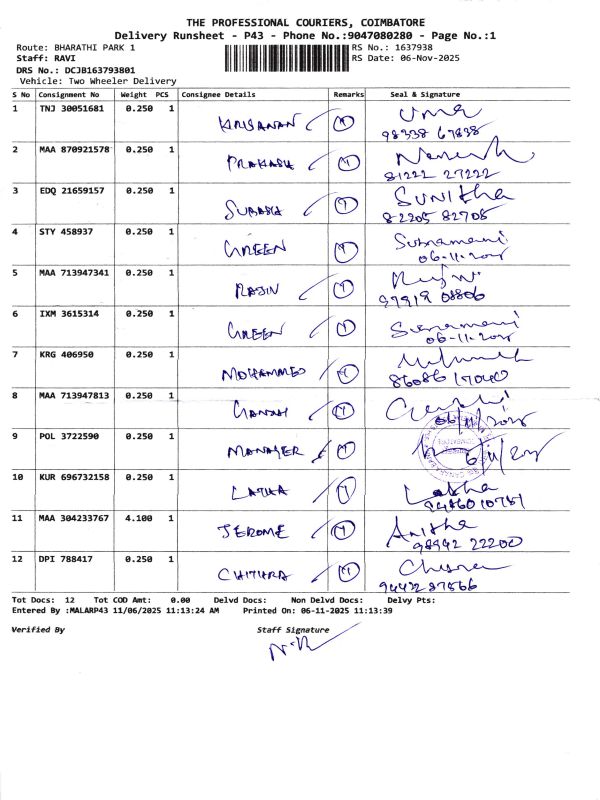 THE PROFESSIONAL COURIERS, COIMBATORE
Delivery Runsheet - P43 - Phone No.:9047080280 - Page No.:1
Route: BHARATHI PARK 1 RS No.: 1637938
Staff: RAVI RS Date: 06-Nov-2025
DRS No.: DCJB163793801
Vehicle: Two Wheeler Delivery
S No Consignment No Weight PCS Consignee Details Remarks Seal & Signature
1 TNJ 30051681 0.250 1 KRISANAN Uma
98338 67838
2 MAA 870921578 0.250 1 PRAKASH Naresh
81222 27222
3 EDQ 21659157 0.250 1 SUBASH SUNItha
82205 82708
4 STY 458937 0.250 1 GREEN
06-11-2025
5 MAA 713947341 0.250 1 RAJIN
97919 08806
6 IXM 3615314 0.250 1 GREEN
06-11-2025
7 KRG 406950 0.250 1 MOHAMMED
86086 17040
8 MAA 713947813 0.250 1
06/11/2025
9 POL 3722590 0.250 1 MANAGER
6/11/2025
10 KUR 696732158 0.250 1 LATHA Latha
11 MAA 304233767 4.100 1 JEROME Anitha
98942 22200
12 DPI 788417 0.250 1 CHITHRA
94432 87866
Tot Docs: 12 Tot COD Amt: 0.00 Delvd Docs: Non Delvd Docs: Delvy Pts:
Entered By :MALARP43 11/06/2025 11:13:24 AM Printed On: 06-11-2025 11:13:39
Verified By Staff Signature